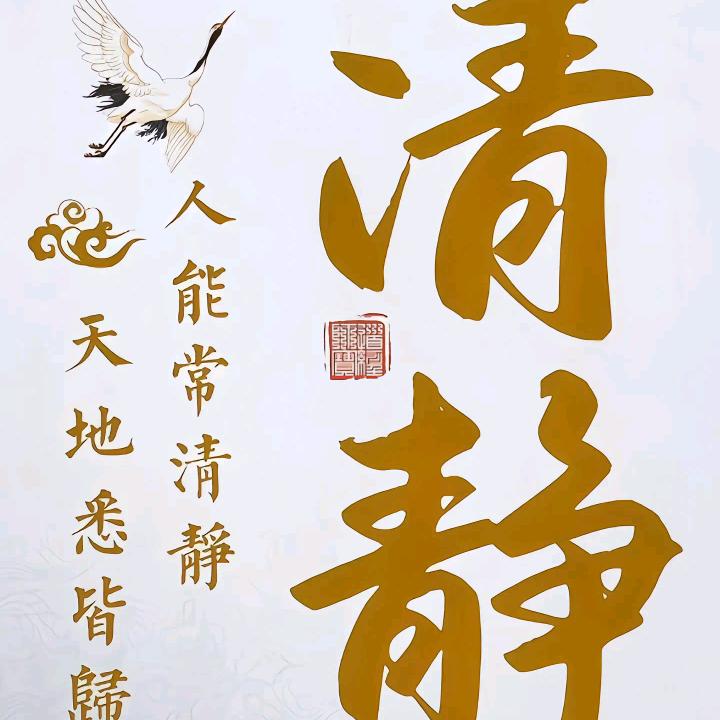 清靜
人能常清靜
天地悉皆歸